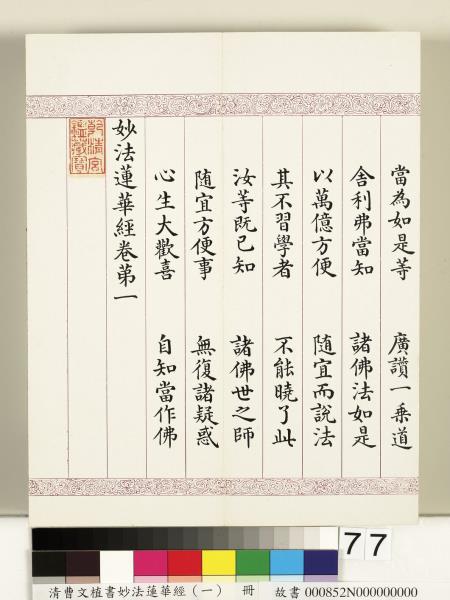 當為如是等　廣讚一乗道
舍利弗當知　諸佛法如是
以萬億方便　隨宜而說法
其不習學者　不能曉了此
汝等既已知　諸佛世之師
隨宜方便事　無復諸疑惑
心生大歡喜　自知當作佛
妙法蓮華經卷苐一
乾清宮鑑藏寶
77
清曹文植書妙法蓮華經（一）　冊　故書 000852N000000000